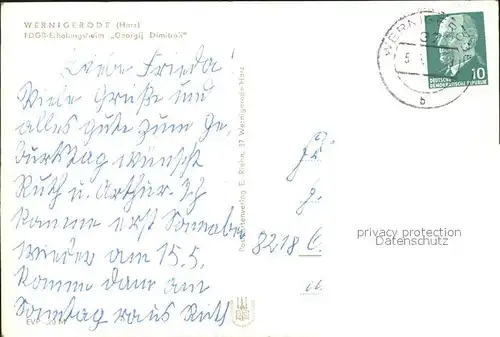 WERNIGERODE (Harz)
FDGB-Erholungsheim „Georgij Dimitroff"
Liebe Frieda!
Viele Grüße und
alles gute zum Ge-
burtstag wünscht
Ruth u. Arthur. Ich
komme erst Sonnabend
wieder am 15.5.
Komme dann am
Sonntag raus Ruth
EVP
Postkartenverlag E. Riehn, 37 Wernigerode-Harz
WERNIGERODE
5.
b
10
DEUTSCHE
DEMOKRATISCHE REPUBLIK
8218
privacy protection
Datenschutz